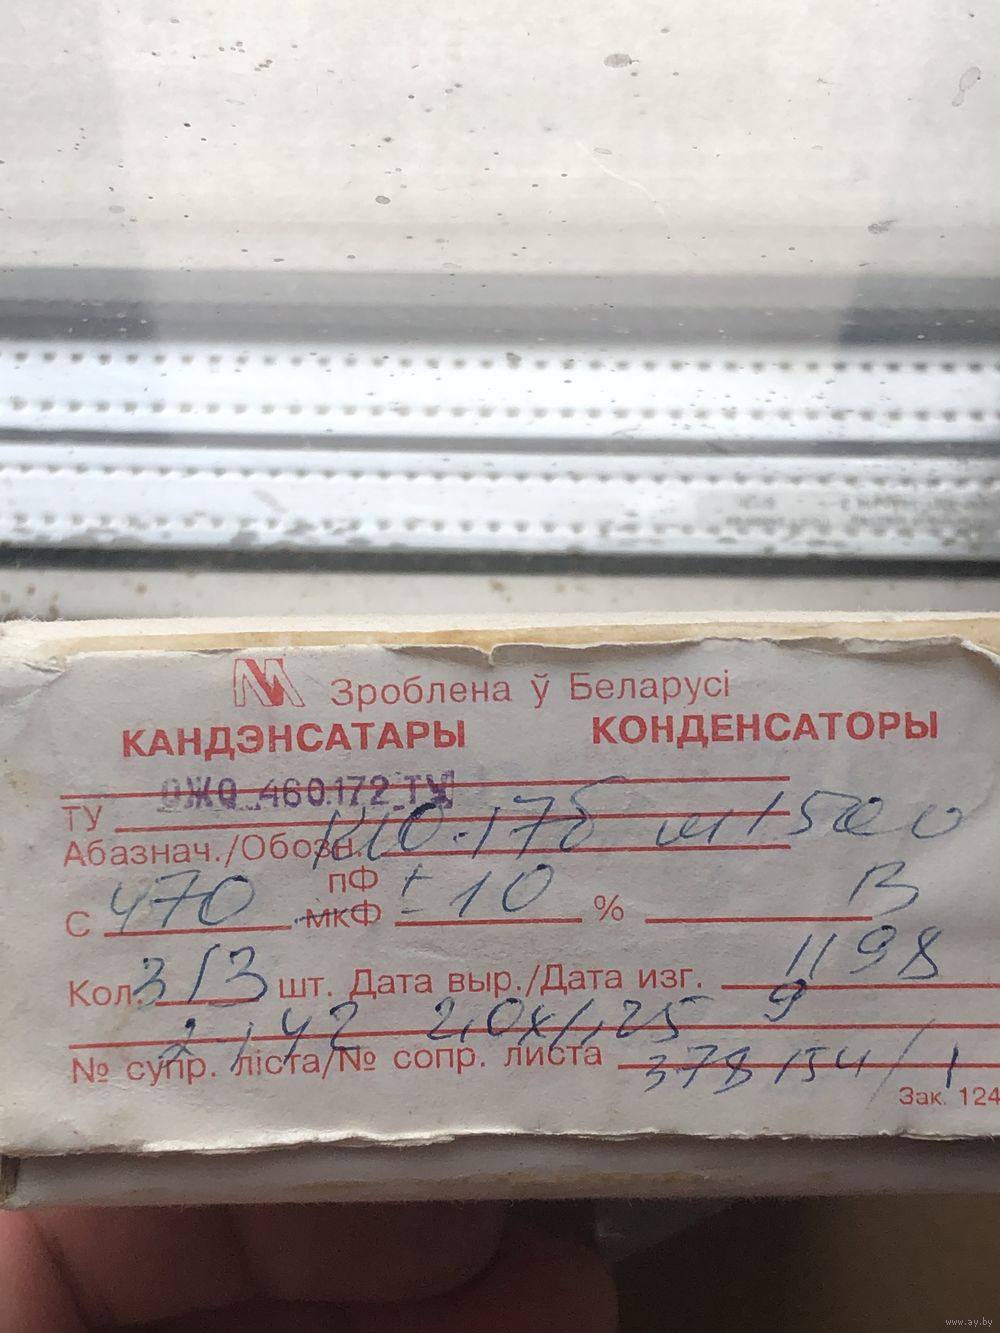 Зроблена ў Беларусі
КАНДЭНСАТАРЫ КОНДЕНСАТОРЫ
ТУ ОЖО 460.172 ТУ
Абазнач./Обозн. К10-17б м1500
С 470 пФ мкФ ± 10 % В
Кол. 313 шт. Дата выр./Дата изг. 1198
2,0х1,25 9
№ супр. ліста/№ сопр. листа 378154/1
Зак. 124
www.ay.by